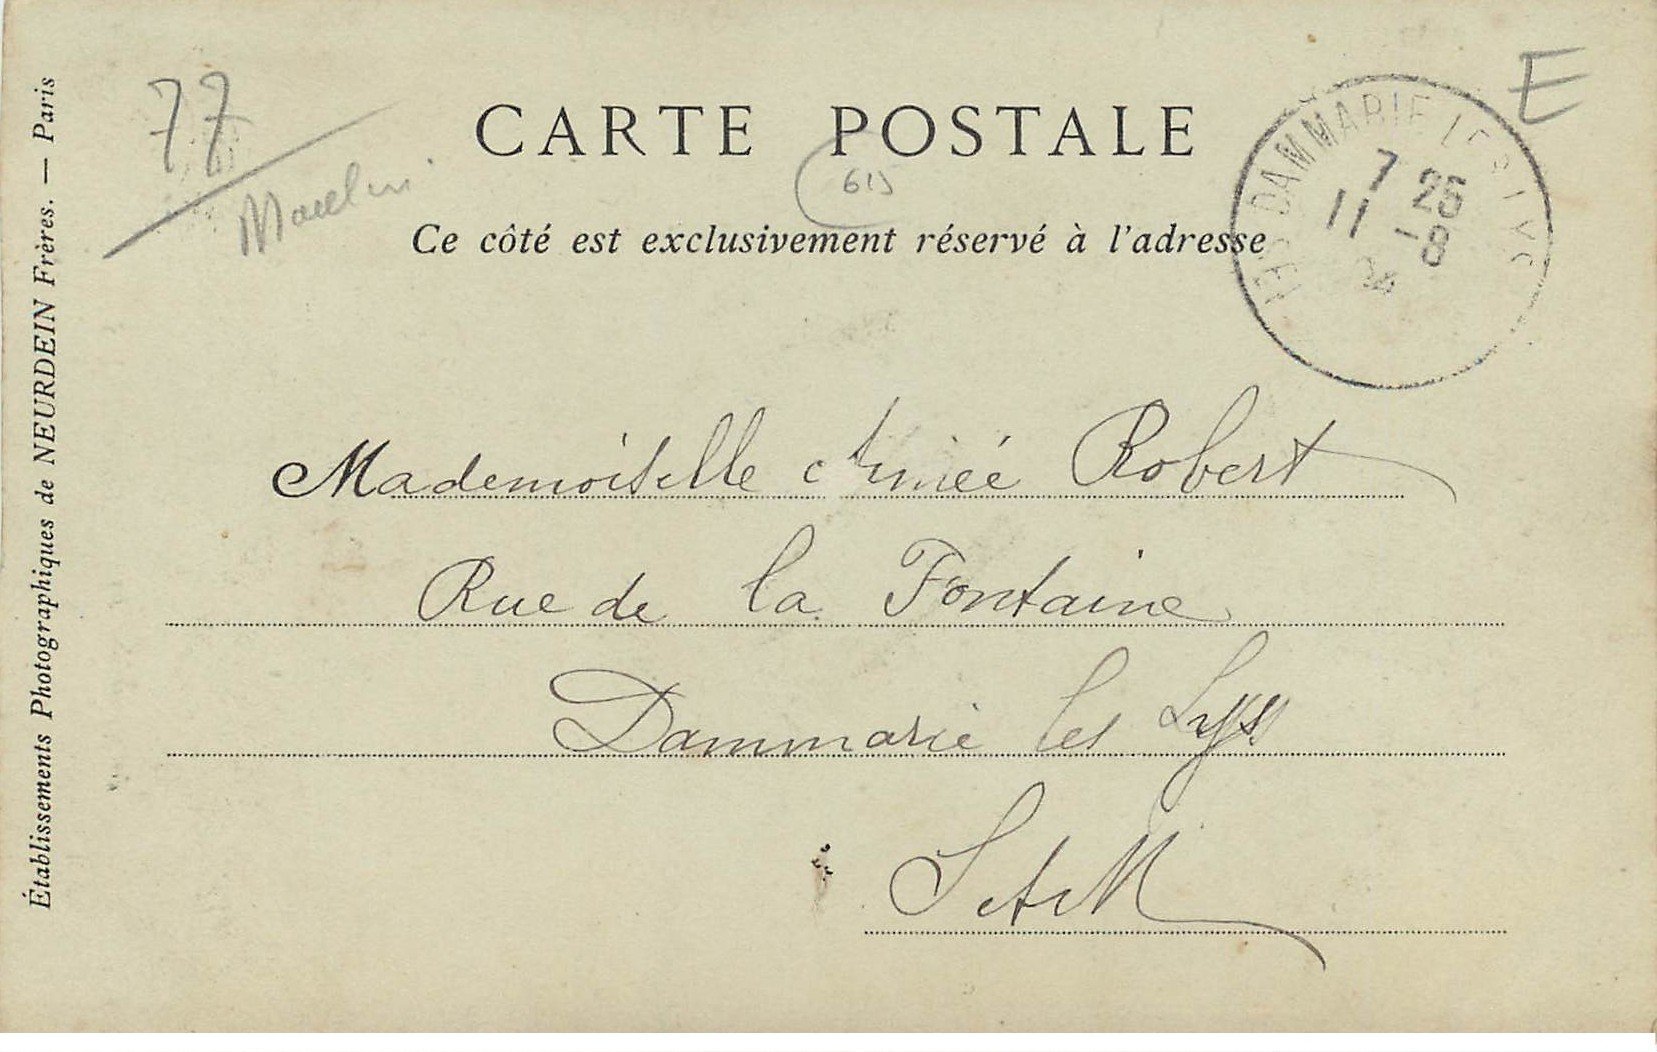 CARTE POSTALE
Ce côté est exclusivement réservé à l'adresse
Établissements Photographiques de NEURDEIN Frères. — Paris
77
E
DAMMARIE LES LYS
7 25
11 -8
04
Mademoiselle Aimée Robert
Rue de la Fontaine
Dammarie les Lys
S et M